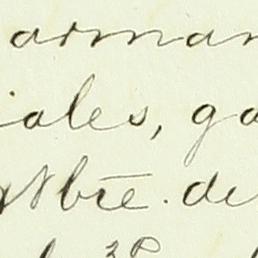 arman
iales, ga
Nbre. de